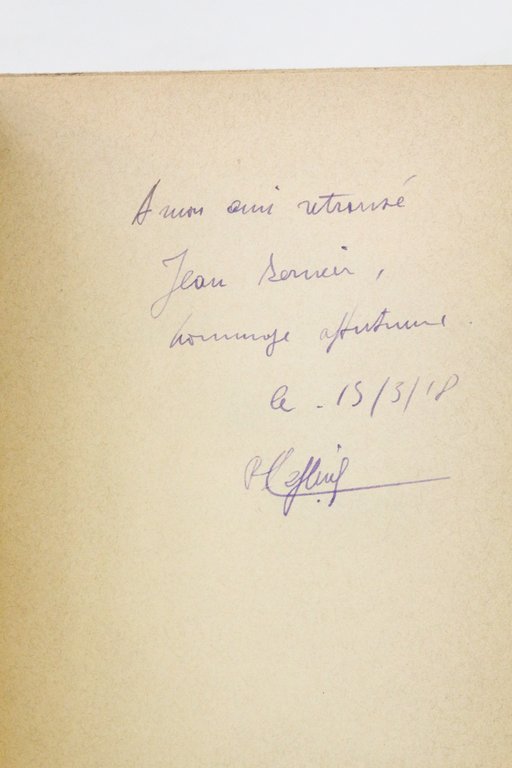 A mon ami retrouvé
Jean Bernier,
hommage affectueux.
le - 15/3/18